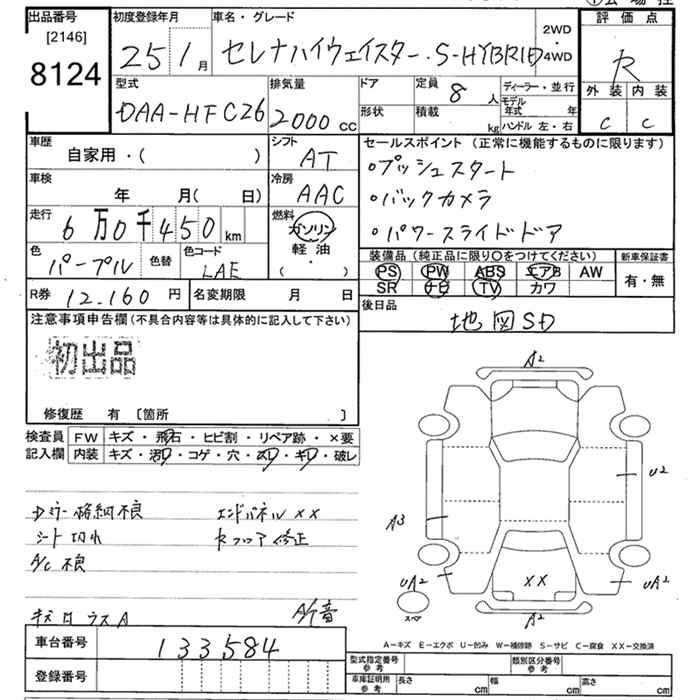 出品番号 初度登録年月 車名・グレード 評価点
[2146]
8124
25 1月 セレナハイウェイスター・S-HYBRID 2WD・4WD R
外装 内装
C C
型式 排気量 ドア 定員 ディーラー・並行
DAA-HFC26 2000cc 8人 モデル年式 年
形状 積載 kg ハンドル 左・右
車歴 シフト セールスポイント (正常に機能するものに限ります)
自家用・( ) AT ・プッシュスタート
車検 冷房
年 月( 日) AAC ・バックカメラ
走行 燃料
6万0千450km ガソリン ・パワースライドドア
軽油
・
( )
色 色替 色コード
パープル LAE
装備品 (純正品に限り○をつけてください) 新車保証書
PS PW ABS エアB AW 有・無
SR ナビ TV カワ
R券 12.160円 名変期限 月 日
後日品
地図SD
注意事項申告欄 (不具合内容等は具体的に記入して下さい)
初出品
修復歴 有 〔箇所 〕
検査員 FW キズ・飛石・ヒビ割・リペア跡・×要
記入欄 内装 キズ・汚レ・コゲ・穴・スレ・キレ・破レ
A2
U2
A3
UA2 UA2
XX
A2
スペア
Dミラー格納不良 エンドパネル XX
シート切れ Rフロア修正
A/C 不良
A/C音
A-キズ E-エクボ U-凹み W-補修跡 S-サビ C-腐食 XX-交換済
車台番号 133584
登録番号
型式指定番号 参考 類別区分番号 参考
車庫証明用 参考 長さ cm 幅 cm 高さ cm